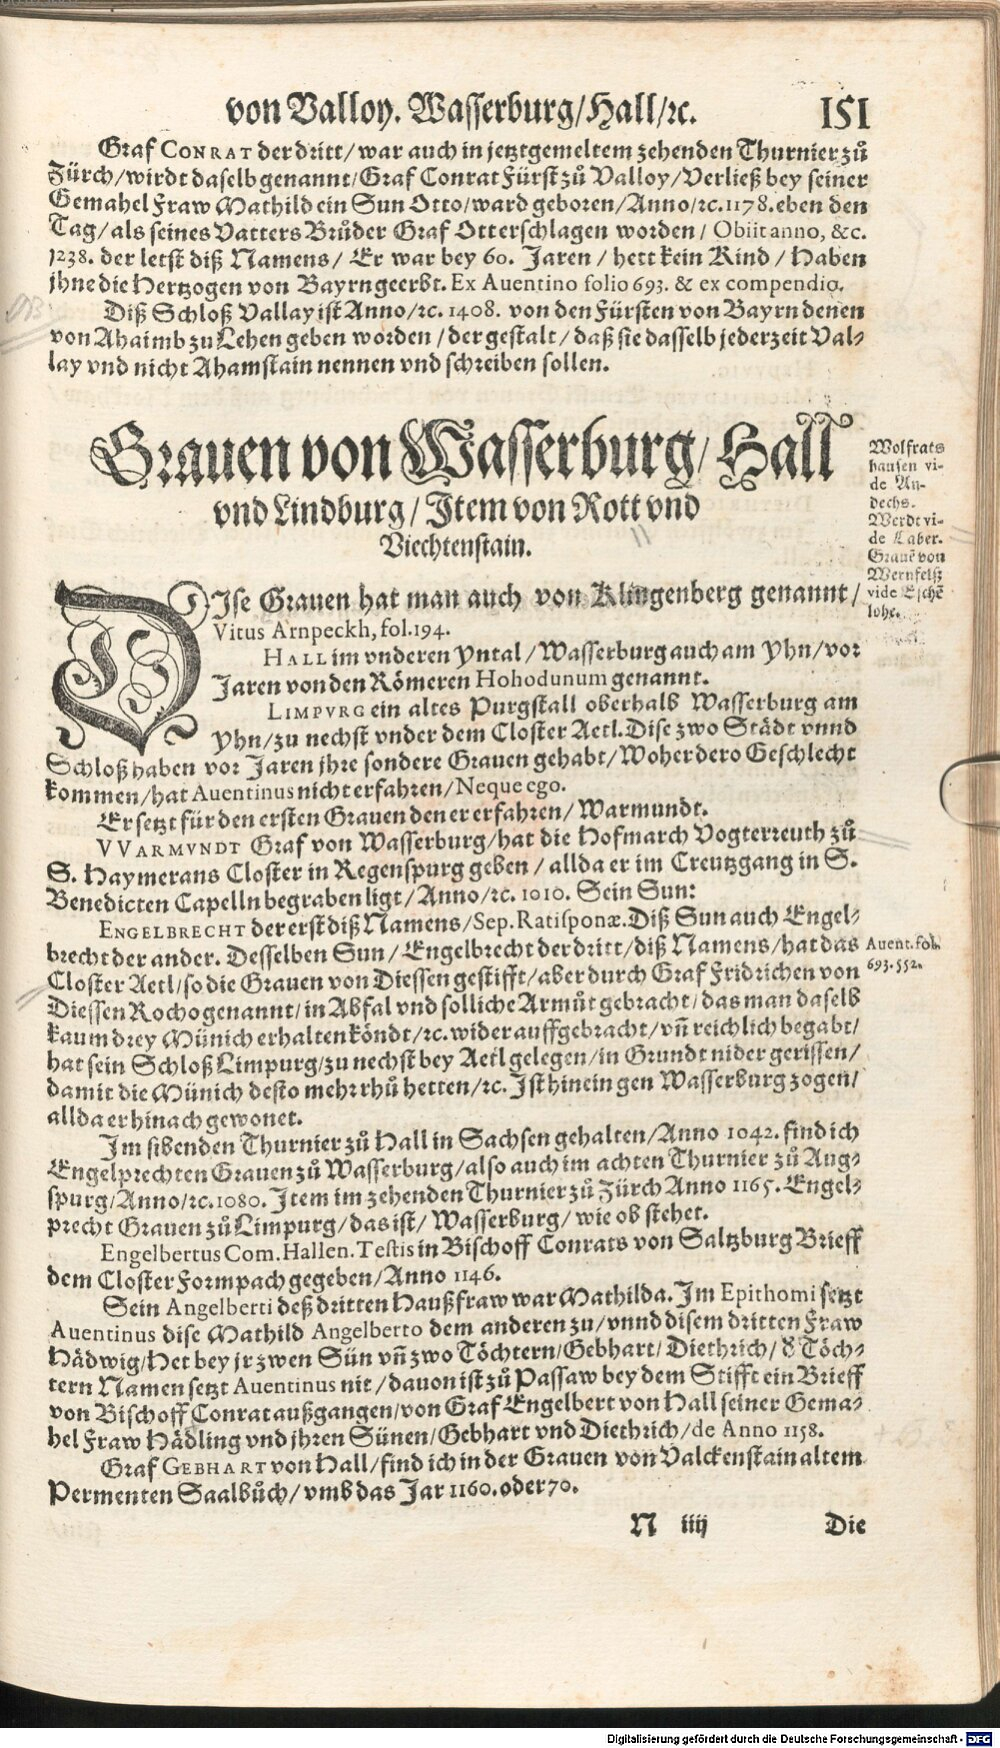 von Valloy. Wasserburg/Hall/ꝛc. 151
Graf CONRAT der dritt/ war auch in jetztgemeltem zehenden Thurnier zů
Zürch/wirdt daselb genannt/Graf Conrat Fürst zů Valloy/Verließ bey seiner
Gemahel Fraw Mathild ein Sun Otto/ward geboren/Anno/ꝛc. 1178. eben den
Tag/als seines Vatters Brůder Graf Ott erschlagen worden/ Obiit anno, &c.
1238. der letst diß Namens/ Er war bey 60. Jaren/ hett kein Kind/ Haben
jhne die Hertzogen von Bayrn geerbt. Ex Auentino folio 693. & ex compendio.
Diß Schloß Vallay ist Anno/ꝛc. 1408. von den Fürsten von Bayrn denen
von Ahaimb zu Lehen geben worden/der gestalt/ daß sie dasselb jederzeit Val⸗
lay vnd nicht Ahamstain nennen vnd schreiben sollen.
Grauen von Wasserburg/ Hall
vnd Lindburg/ Item von Rott vnd
Viechtenstain.
Wolfrats
hausen vi-
de An-
dechs.
Werdt vi-
de Laber.
Grauē von
Wernfelß
vide Eschē
lohe.
DIse Grauen hat man auch von Klingenberg genannt/
Vitus Arnpeckh, fol. 194.
HALL im vnderen Yntal/Wasserburg auch am Yhn/vor
Jaren von den Römeren Hohodunum genannt.
LIMPVRG ein altes Purgstall oberhalb Wasserburg am
Yhn/zu nechst vnder dem Closter Aetl. Dise zwo Städt vnnd
Schloß haben vor Jaren jhre sondere Grauen gehabt/Woher dero Geschlecht
kommen/hat Auentinus nicht erfahren/Neque ego.
Er setzt für den ersten Grauen den er erfahren/ Warmundt.
VVARMVNDT Graf von Wasserburg/hat die Hofmarch Vogterreuth zů
S. Haymerans Closter in Regenspurg geben/ allda er im Creutzgang in S.
Benedicten Capelln begraben ligt/Anno/ꝛc. 1010. Sein Sun:
ENGELBRECHT der erst diß Namens/Sep. Ratisponæ. Diß Sun auch Engel⸗
brecht der ander. Desselben Sun/Engelbrecht der dritt/diß Namens/hat das
Auent. fol.
693. 552.
Closter Aetl/so die Grauen von Diessen gestifft/aber durch Graf Fridrichen von
Diessen Rocho genannt/in Abfal vnd solliche Armůt gebracht/das man daselb
kaum drey Münich erhalten köndt/ꝛc. wider auffgebracht/vñ reichlich begabt/
hat sein Schloß Limpurg/zu nechst bey Aetl gelegen/in Grundt nider gerissen/
damit die Münich desto mehr rhů hetten/ꝛc. Ist hinein gen Wasserburg zogen/
allda er hinach gewonet.
Im sibenden Thurnier zů Hall in Sachsen gehalten/Anno 1042. find ich
Engelprechten Grauen zů Wasserburg/also auch im achten Thurnier zů Aug⸗
spurg/Anno/ꝛc. 1080. Item im zehenden Thurnier zů Zürch Anno 1165. Engel⸗
precht Grauen zů Limpurg/das ist/ Wasserburg/ wie ob stehet.
Engelbertus Com. Hallen. Testis in Bischoff Conrats von Saltzburg Brieff
dem Closter Formpach gegeben/Anno 1146.
Sein Angelberti deß dritten Haußfraw war Mathilda. Im Epithomi setzt
Auentinus dise Mathild Angelberto dem anderen zu/vnnd disem dritten Fraw
Hädwig/Het bey jr zwen Sün vñ zwo Töchtern/Gebhart/ Diethrich/ d̕ Töch⸗
tern Namen setzt Auentinus nit/dauon ist zů Passaw bey dem Stifft ein Brieff
von Bischoff Conrat außgangen/von Graf Engelbert von Hall seiner Gema⸗
hel Fraw Hädling vnd jhren Sünen/Gebhart vnd Diethrich/de Anno 1158.
Graf GEBHART von Hall/find ich in der Grauen von Valckenstain altem
Permenten Saalbůch/ vmb das Jar 1160. oder 70.
N iiij Die
Digitalisierung gefördert durch die Deutsche Forschungsgemeinschaft - DFG